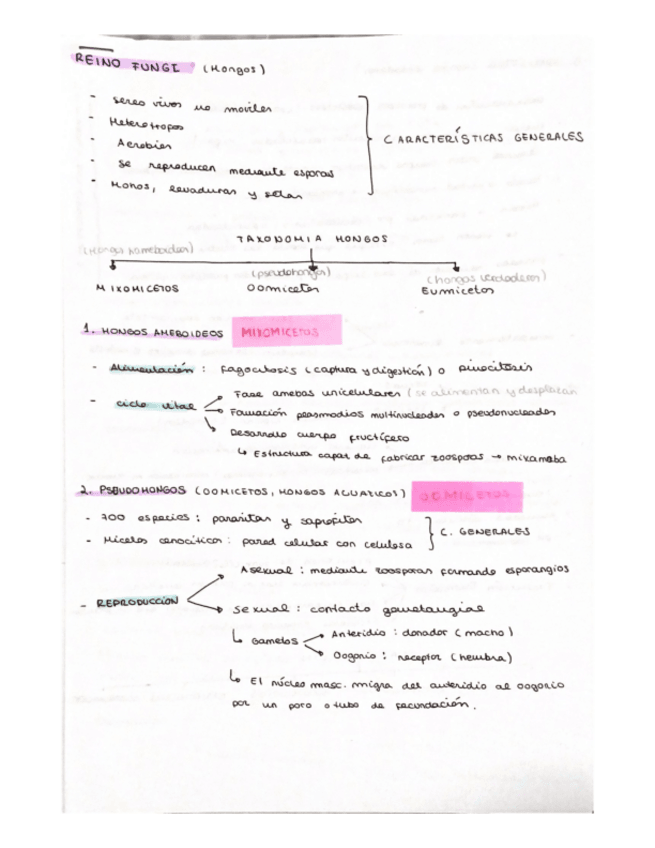 REINO FUNGI (Hongos)
- Seres vivos no moviles
- Heterotropos
- Aerobios
- Se reproducen mediante esporas
- Mohos, levaduras y setas
CARACTERÍSTICAS GENERALES
TAXONOMIA HONGOS
(Hongos ameboides)
(pseudohongos)
(hongos verdaderos)
MIXOMICETOS
Oomicetos
Eumicetos
1. HONGOS AMEBOIDEOS MIXOMICETOS
- Alimentación : fagocitosis (captura y digestión) o pinocitosis
- ciclo vital
Fase amebas unicelulares (se alimentan y desplazan
Formación plasmodios multinucleados o pseudonucleados
Desarrollo cuerpo fructífero
↳ Estructura capaz de fabricar zoosporas → mixameba
2. PSEUDOHONGOS (OOMICETOS, HONGOS ACUATICOS) OOMICETOS
- 700 especies : parasitos y saprofitos
- Micelos cenocíticos : pared celular con celulosa
C. GENERALES
Asexual : mediante zoosporas formando esporangios
- REPRODUCCION
Sexual : contacto gametangial
↳ Gametos
Anteridio : donador (macho)
Oogonio : receptor (hembra)
↳ El núcleo masc. migra del anteridio al oogonio
por un poro o tubo de fecundación.